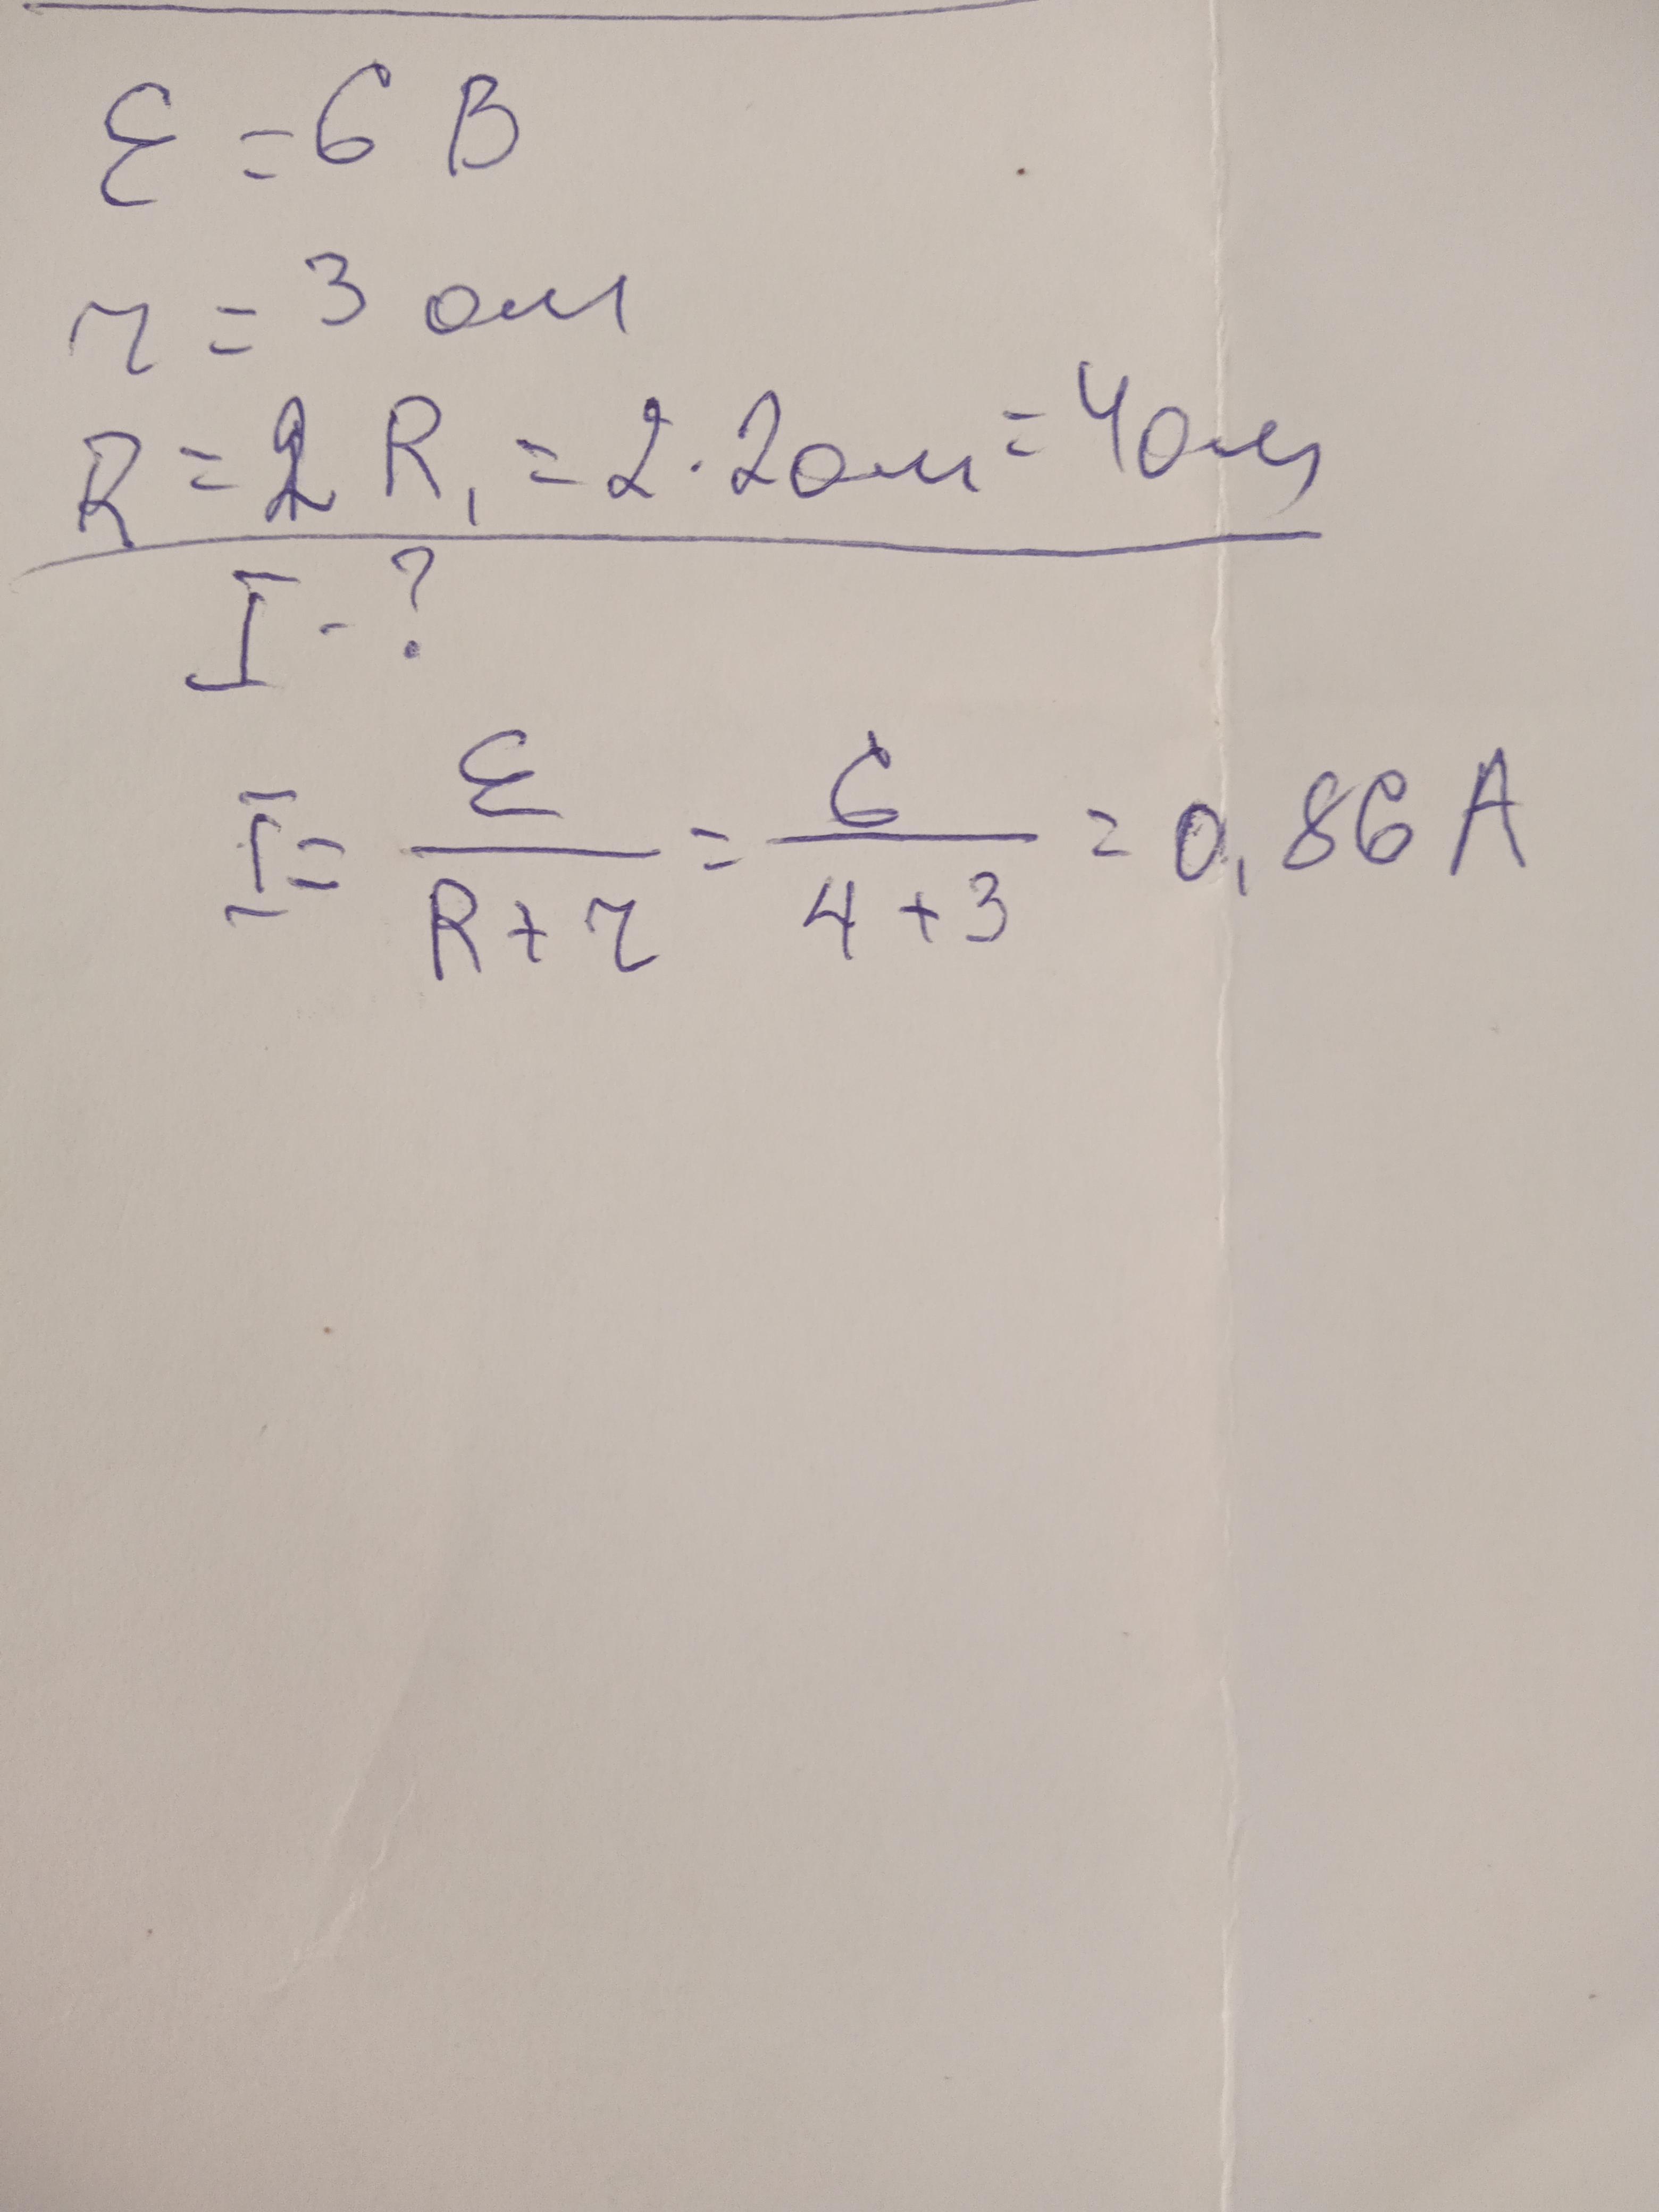 ℰ = 6 В
r = 3 ом
R = 2 R₁ = 2·2ом = 4ом
I - ?
I = ℰ / (R + r) = 6 / (4 + 3) = 0,86 А